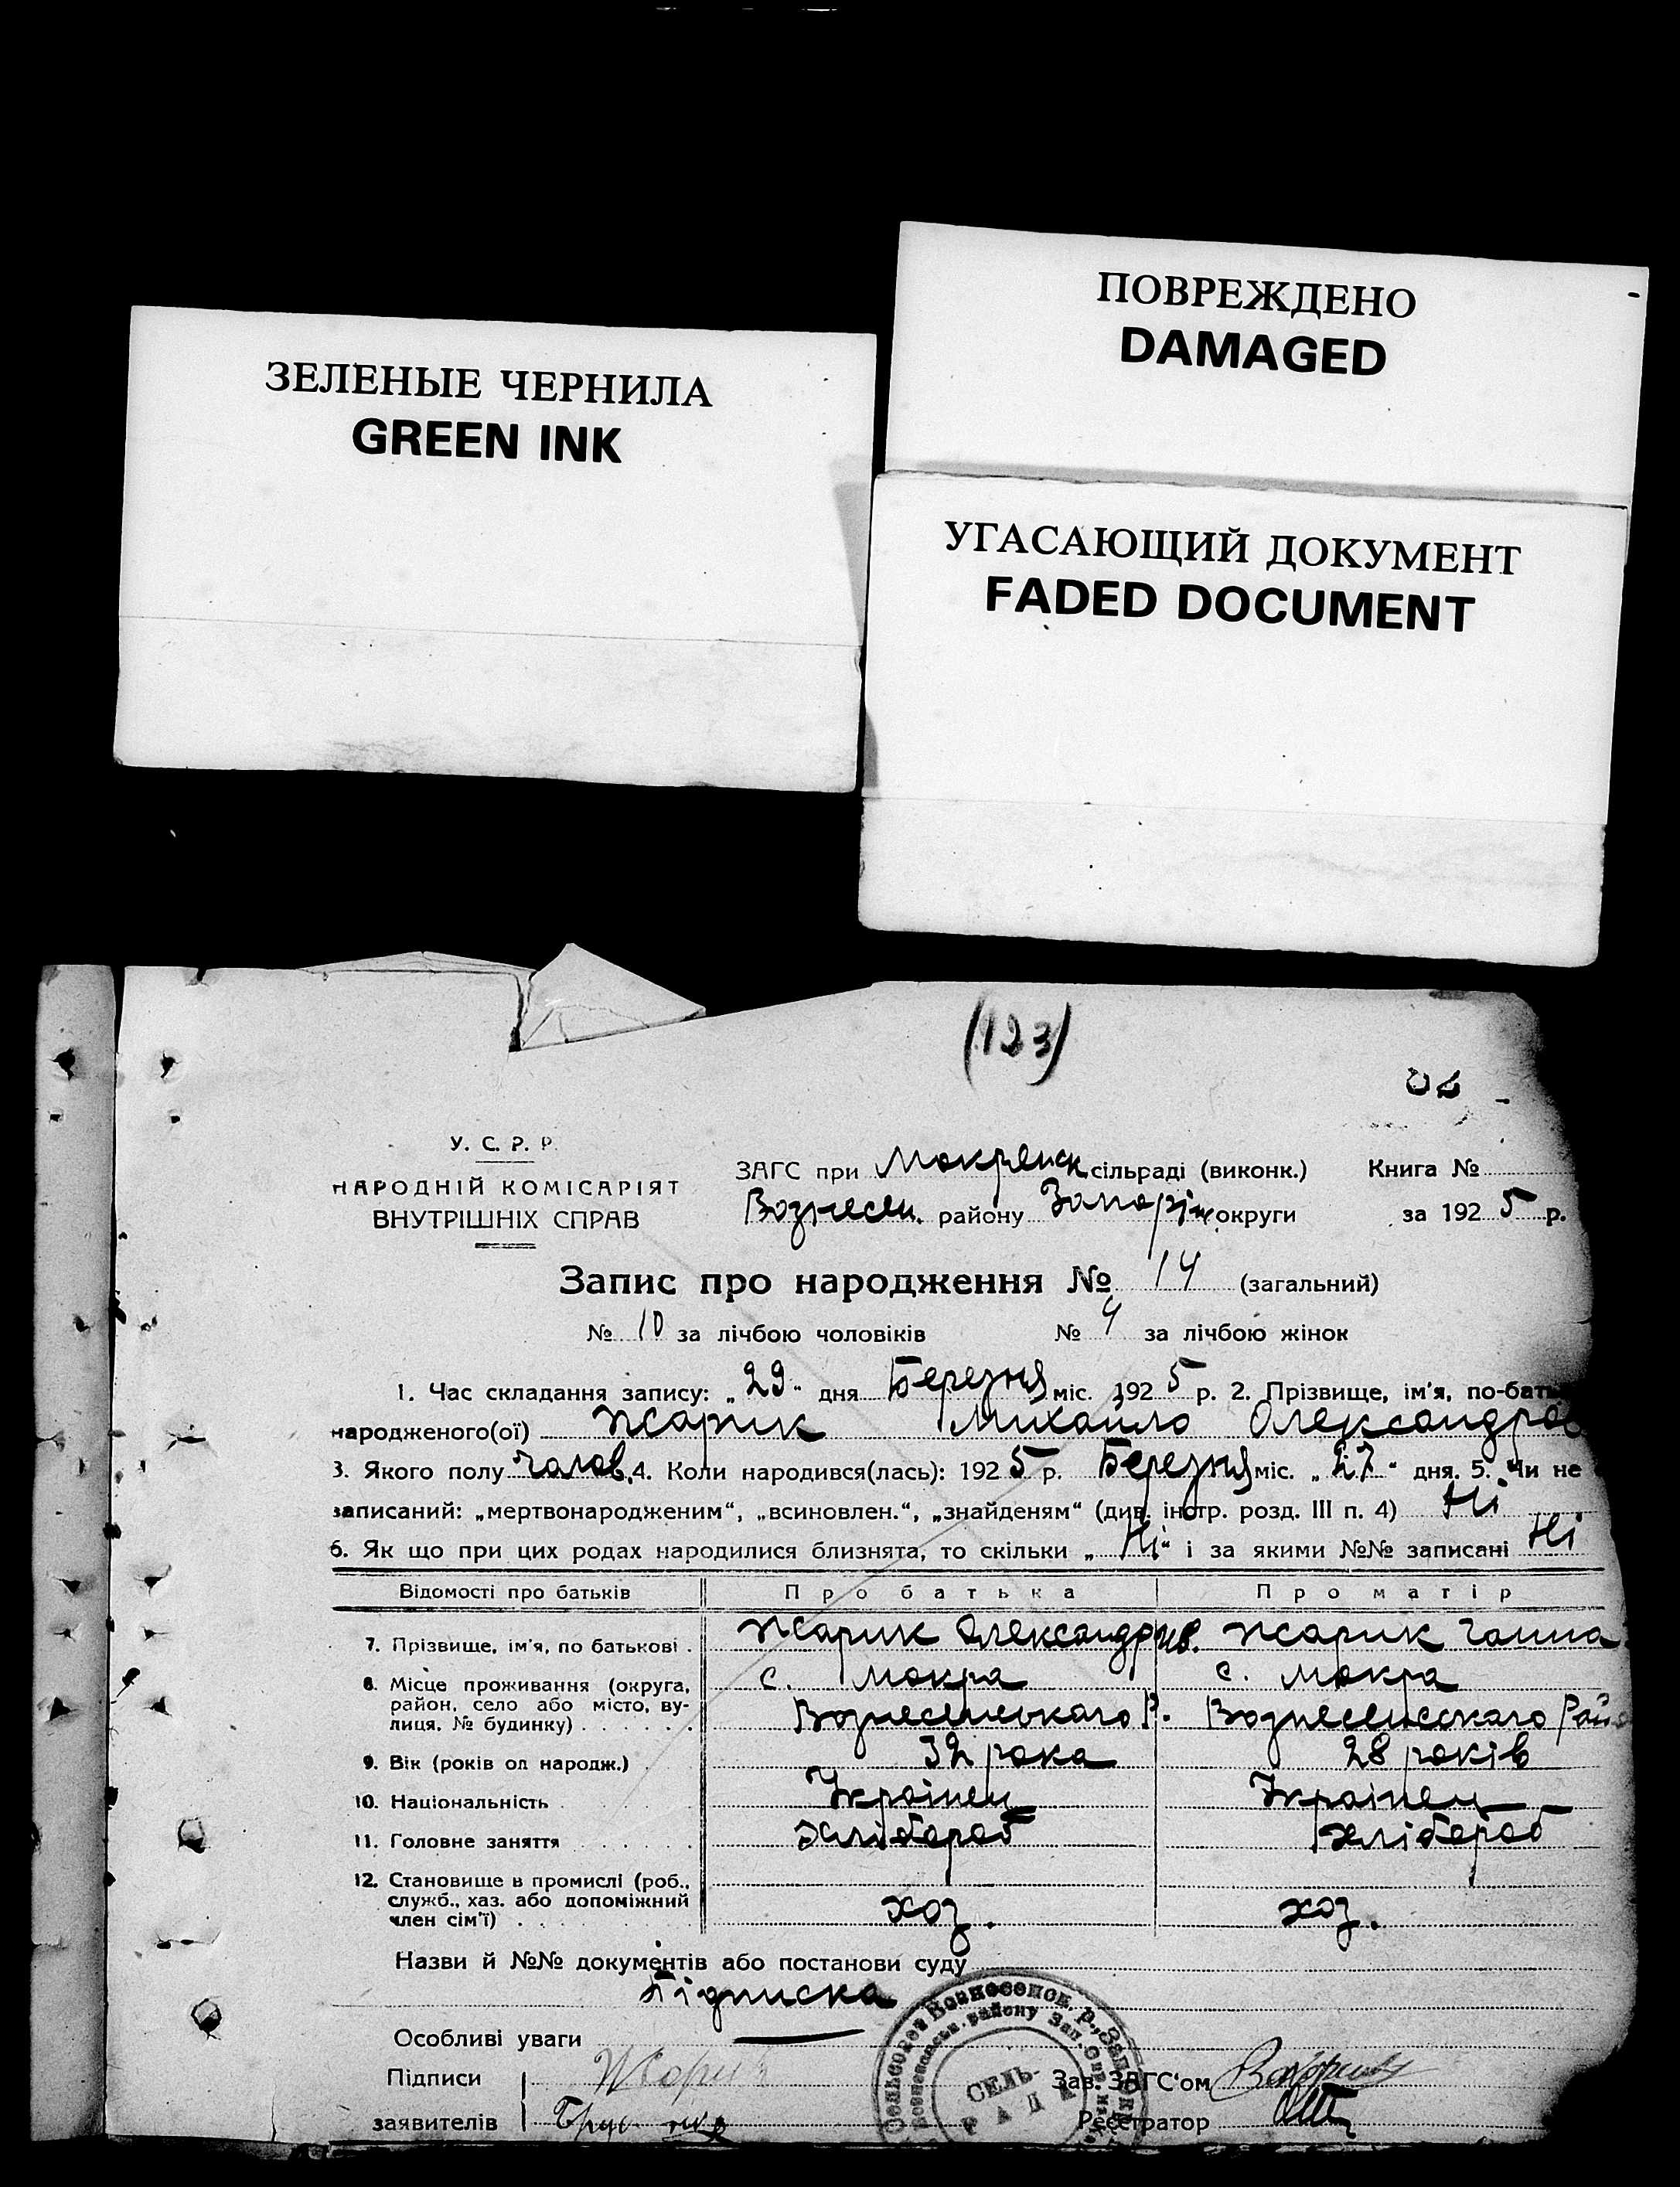 ПОВРЕЖДЕНО
DAMAGED
ЗЕЛЕНЫЕ ЧЕРНИЛА
GREEN INK
УГАСАЮЩИЙ ДОКУМЕНТ
FADED DOCUMENT
(123)
У. С. Р. Р.
НАРОДНІЙ КОМІСАРІЯТ
ВНУТРІШНІХ СПРАВ
ЗАГС при Мокрянск сільраді (виконк.) Книга №
Вознесен. району Запоріж округи за 1925 р.
Запис про народження № 14 (загальний)
№ 10 за лічбою чоловіків № 4 за лічбою жінок
1. Час складання запису: „29" дня Березня міс. 1925 р. 2. Прізвище, ім'я, по-бать
народженого(ої) Жарик Михайло Олександров
3. Якого полу чолов. 4. Коли народився(лась): 1925 р. Березня міс. „27" дня. 5. Чи не
записаний: „мертвонародженим", „всиновлен.", „знайденям" (див. інстр. розд. III п. 4) Ні
6. Як що при цих родах народилися близнята, то скільки „Ні" і за якими №№ записані Ні
Відомості про батьків Про батька Про матір
7. Прізвище, ім'я, по батькові . Жарик Олександр Ив. Жарик Ганна
8. Місце проживання (округа, с. Мокра с. Мокра
район, село або місто, ву-
лиця, № будинку) . . . . . . Вознесенськаго Р. Вознесенсскаго Рай
9. Вік (років од народж.) . 32 рока 28 років
10. Національність . Украінец Украінец
11. Головне заняття . . . . . Хлібороб хлібороб
12. Становище в промислі (роб.,
служб., хаз. або допоміжний
член сім'ї) . . . . хоз. хоз.
Назви й №№ документів або постанови суду
Підписка
Особливі уваги
Підписи Жарик Зав. ЗАГС'ом
заявителів Реєстратор
СЕЛЬ-
РАДА